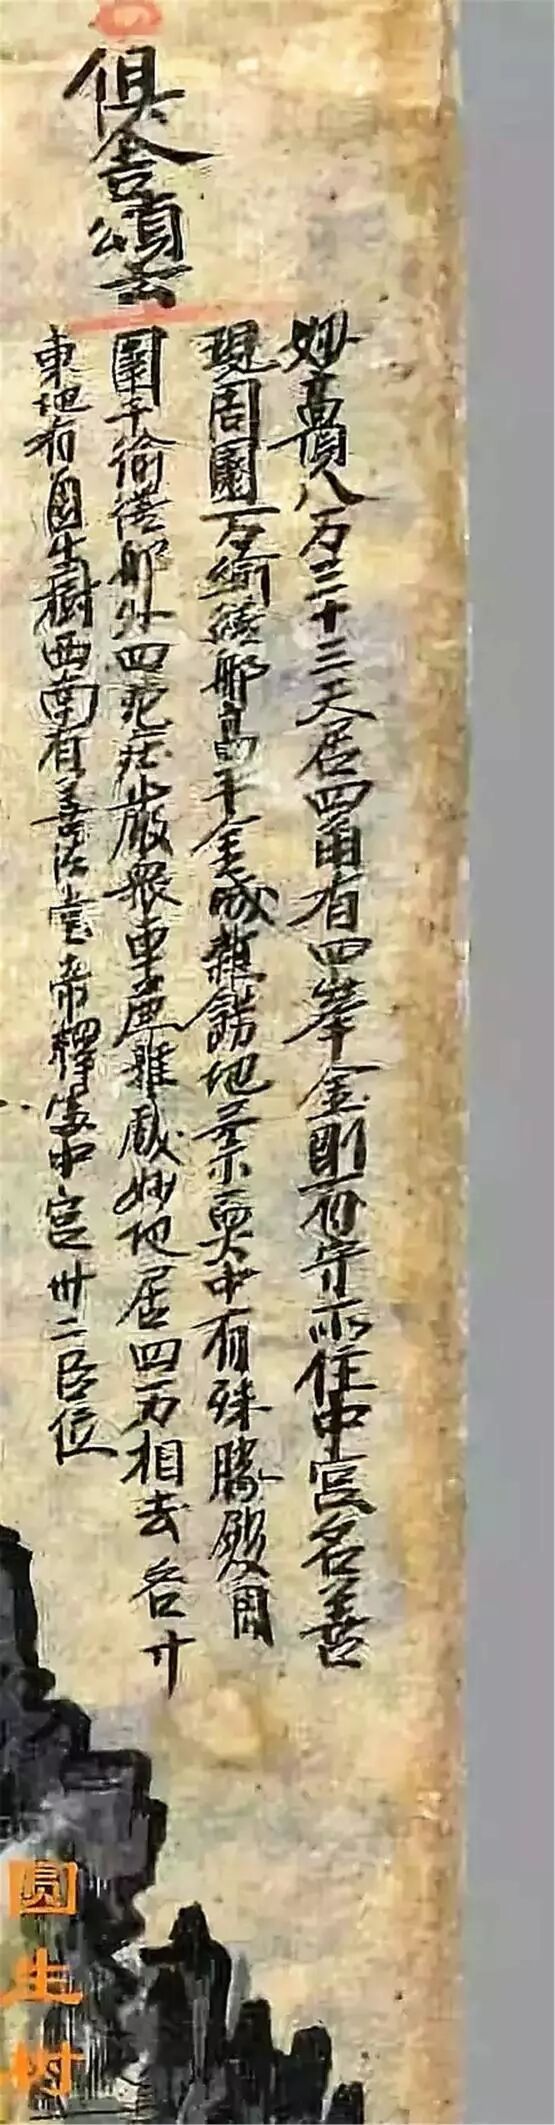 俱舍頌云
妙高頂八万三十三天居四角有四峯金剛手守所住中宮名善
現周圍万踰繕那高千金城雜飾地柔耎中有殊勝殿周
圍千踰繕那外四苑庄嚴衆車麁雜戲妙地居四方相去各廿
東北有圓生樹西南有善法堂帝釋處中宮卅二臣位
圆生树